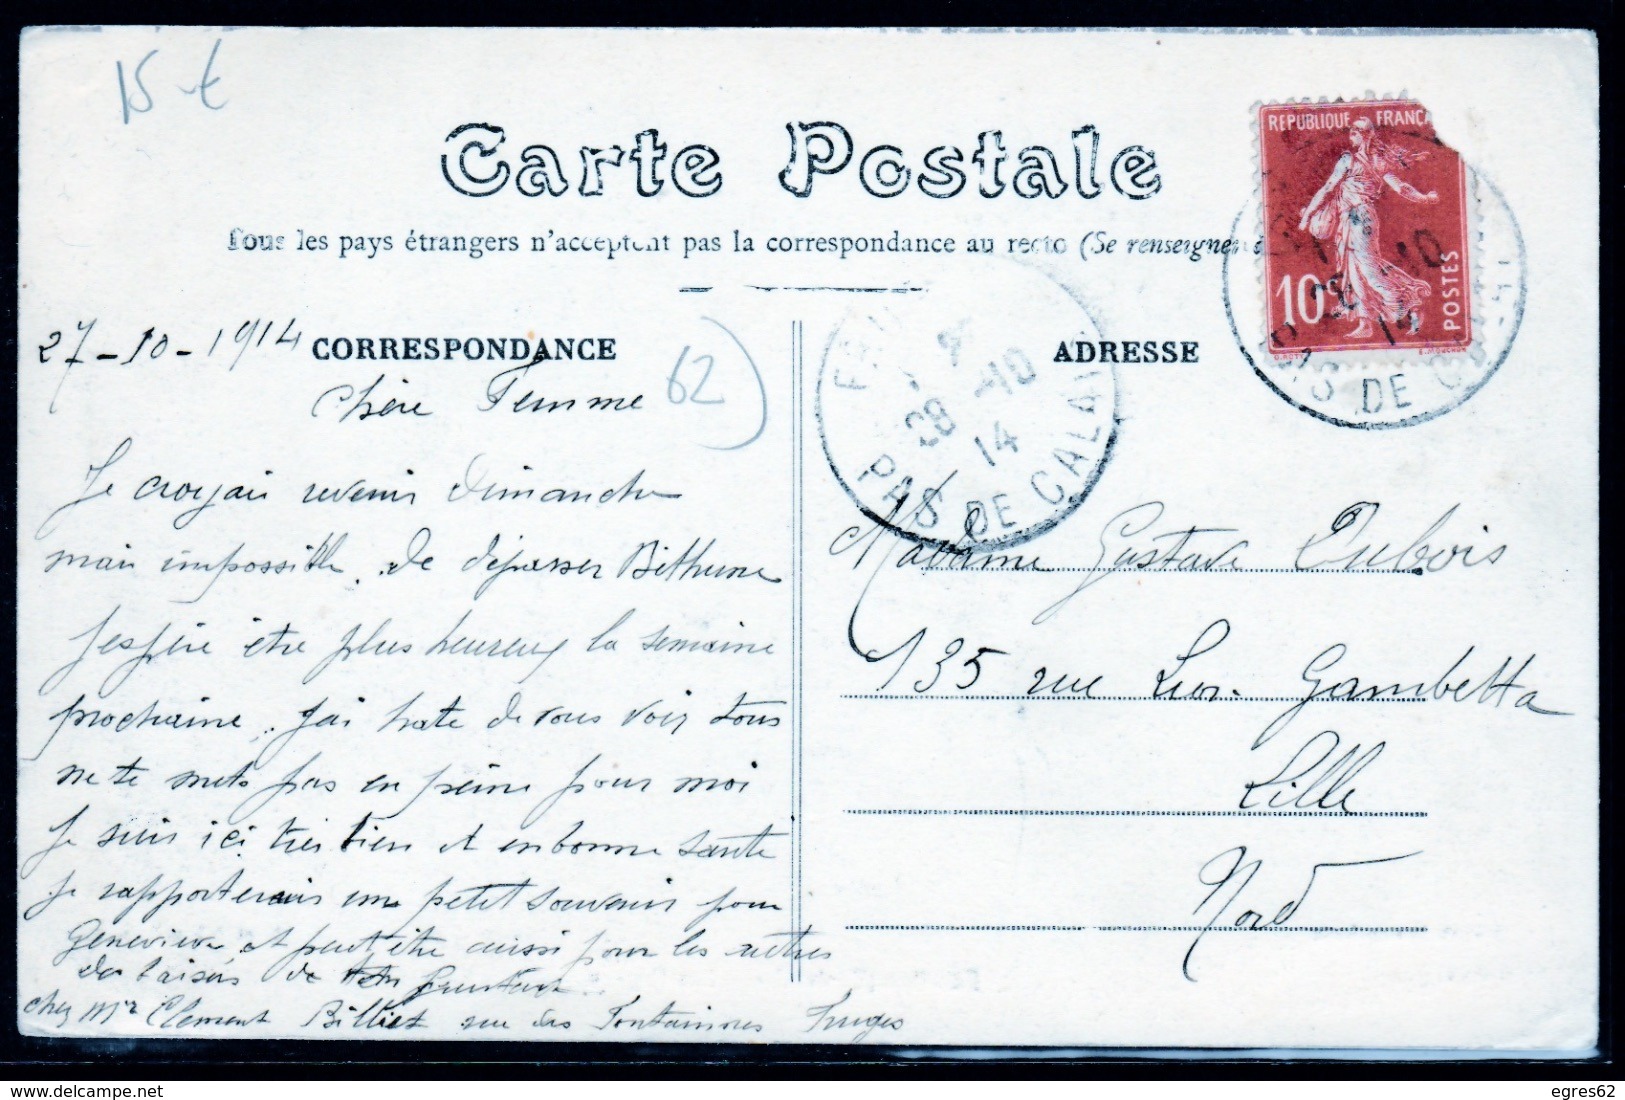 15 €
Carte Postale
Tous les pays étrangers n'acceptent pas la correspondance au recto (Se renseigner à
REPUBLIQUE FRANÇA
10c
POSTES
28 -10
14
PAS DE CA
27-10-1914
CORRESPONDANCE
62
FRU
28 -10
14
PAS DE CALAI
ADRESSE
Chère Femme
Je croyais revenir Dimanche
mais impossible de dépasser Béthune
J'espère être plus heureux la semaine
prochaine. J'ai hate de vous voir tous
ne te mets pas en peine pour moi
Je suis ici très bien et en bonne santé
Je rapporterais un petit souvenir pour
Geneviève et peut être aussi pour les autres
des baisers de ton Gustave
chez Mr Clement Billiet rue des Fontaines Fruges
Madame Gustave Dubois
135 rue Léon Gambetta
Lille
Nord
http://www.delcampe.net
egres62